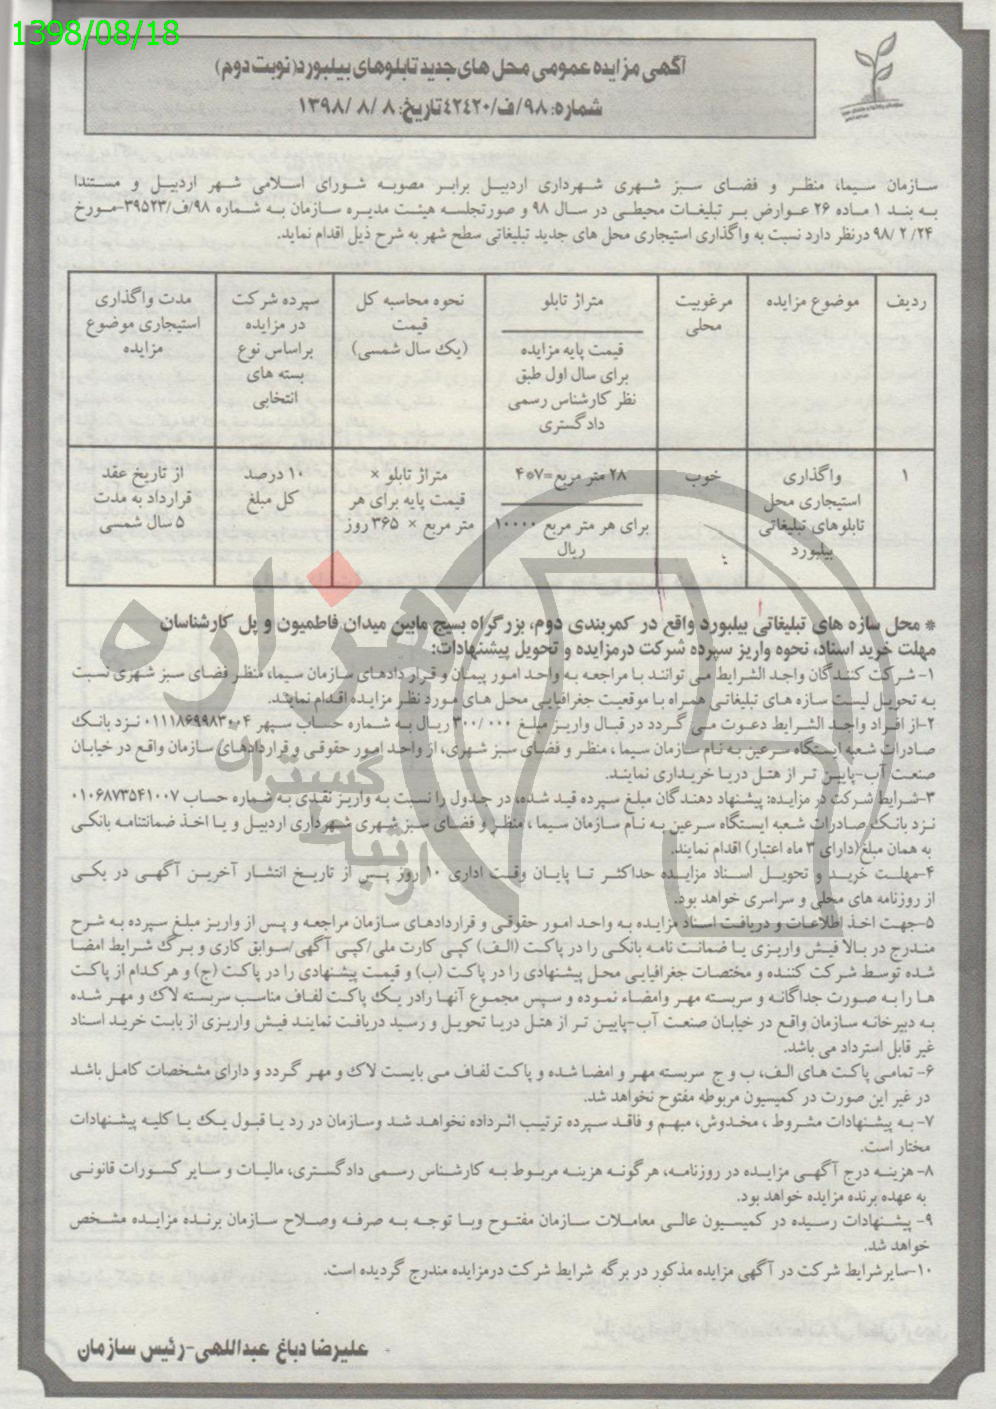 1398/08/18
آگهی مزایده عمومی محل های جدید تابلوهای بیلبورد(نوبت دوم)
شماره: ۹۸/ف/۴۲۴۲۰ تاریخ: ۸ /۸/ ۱۳۹۸
سازمان سیما، منظر و فضای سبز شهری شهرداری اردبیل برابر مصوبه شورای اسلامی شهر اردبیل و مستندا
به بند ۱ ماده ۲۶ عوارض بر تبلیغات محیطی در سال ۹۸ و صورتجلسه هیئت مدیره سازمان به شماره ۹۸/ف/۳۹۵۲۳-مورخ
۲۴/ ۲ /۹۸ درنظر دارد نسبت به واگذاری استیجاری محل های جدید تبلیغاتی سطح شهر به شرح ذیل اقدام نماید.
ردیف
موضوع مزایده
مرغوبیت
محلی
متراژ تابلو
قیمت پایه مزایده
برای سال اول طبق
نظر کارشناس رسمی
دادگستری
نحوه محاسبه کل
قیمت
(یک سال شمسی)
سپرده شرکت
در مزایده
براساس نوع
بسته های
انتخابی
مدت واگذاری
استیجاری موضوع
مزایده
۱
واگذاری
استیجاری محل
تابلوهای تبلیغاتی
بیلبورد
خوب
۲۸ متر مربع=۷*۴
برای هر متر مربع ۱۰۰۰۰
ریال
متراژ تابلو ×
قیمت پایه برای هر
متر مربع × ۳۶۵ روز
۱۰ درصد
کل مبلغ
از تاریخ عقد
قرارداد به مدت
۵ سال شمسی
* محل سازه های تبلیغاتی بیلبورد واقع در کمربندی دوم، بزرگراه بسیج مابین میدان فاطمیون و پل کارشناسان
مهلت خرید اسناد، نحوه واریز سپرده شرکت درمزایده و تحویل پیشنهادات:
۱- شرکت کنندگان واجد الشرایط می توانند با مراجعه به واحد امور پیمان و قراردادهای سازمان سیما، منظر فضای سبز شهری نسبت
به تحویل لیست سازه های تبلیغاتی همراه با موقعیت جغرافیایی محل های مورد نظر مزایده اقدام نمایند.
۲-از افراد واجد الشرایط دعوت می گردد در قبال واریز مبلغ ۳۰۰/۰۰۰ ریال به شماره حساب سپهر ۰۱۱۱۸۶۹۹۸۳۰۰۴ نزد بانک
صادرات شعبه ایستگاه سرعین به نام سازمان سیما ، منظر و فضای سبز شهری، از واحد امور حقوقی و قراردادهای سازمان واقع در خیابان
صنعت آب-پایین تر از هتل دریا خریداری نمایند.
۳-شرایط شرکت در مزایده: پیشنهاد دهندگان مبلغ سپرده قید شده، در جدول را نسبت به واریز نقدی به شماره حساب ۰۱۰۶۸۷۳۵۴۱۰۰۷
نزد بانک صادرات شعبه ایستگاه سرعین به نام سازمان سیما ، منظر و فضای سبز شهری شهرداری اردبیل و یا اخذ ضمانتنامه بانکی
به همان مبلغ(دارای ۳ ماه اعتبار) اقدام نمایند.
۴-مهلت خرید و تحویل اسناد مزایده حداکثر تا پایان وقت اداری ۱۰ روز پس از تاریخ انتشار آخرین آگهی در یکی
از روزنامه های محلی و سراسری خواهد بود.
۵-جهت اخذ اطلاعات و دریافت اسناد مزایده به واحد امور حقوقی و قراردادهای سازمان مراجعه و پس از واریز مبلغ سپرده به شرح
مندرج در بالا فیش واریزی یا ضمانت نامه بانکی را در پاکت (الف) کپی کارت ملی/کپی آگهی/سوابق کاری و برگ شرایط امضا
شده توسط شرکت کننده و مختصات جغرافیایی محل پیشنهادی را در پاکت (ب) و قیمت پیشنهادی را در پاکت (ج) و هرکدام از پاکت
ها را به صورت جداگانه و سربسته مهر وامضاء نموده و سپس مجموع آنها رادر یک پاکت لفاف مناسب سربسته لاک و مهر شده
به دبیرخانه سازمان واقع در خیابان صنعت آب-پایین تر از هتل دریا تحویل و رسید دریافت نمایند فیش واریزی از بابت خرید اسناد
غیر قابل استرداد می باشد.
۶- تمامی پاکت های الف، ب و ج سربسته مهر و امضا شده و پاکت لفاف می بایست لاک و مهر گردد و دارای مشخصات کامل باشد
در غیر این صورت در کمیسیون مربوطه مفتوح نخواهد شد.
۷- به پیشنهادات مشروط ، مخدوش، مبهم و فاقد سپرده ترتیب اثرداده نخواهد شد وسازمان در رد یا قبول یک یا کلیه پیشنهادات
مختار است.
۸- هزینه درج آگهی مزایده در روزنامه، هرگونه هزینه مربوط به کارشناس رسمی دادگستری، مالیات و سایر کسورات قانونی
به عهده برنده مزایده خواهد بود.
۹- پیشنهادات رسیده در کمیسیون عالی معاملات سازمان مفتوح وبا توجه به صرفه وصلاح سازمان برنده مزایده مشخص
خواهد شد.
۱۰-سایرشرایط شرکت در آگهی مزایده مذکور در برگه شرایط شرکت درمزایده مندرج گردیده است.
علیرضا دباغ عبداللهی-رئیس سازمان